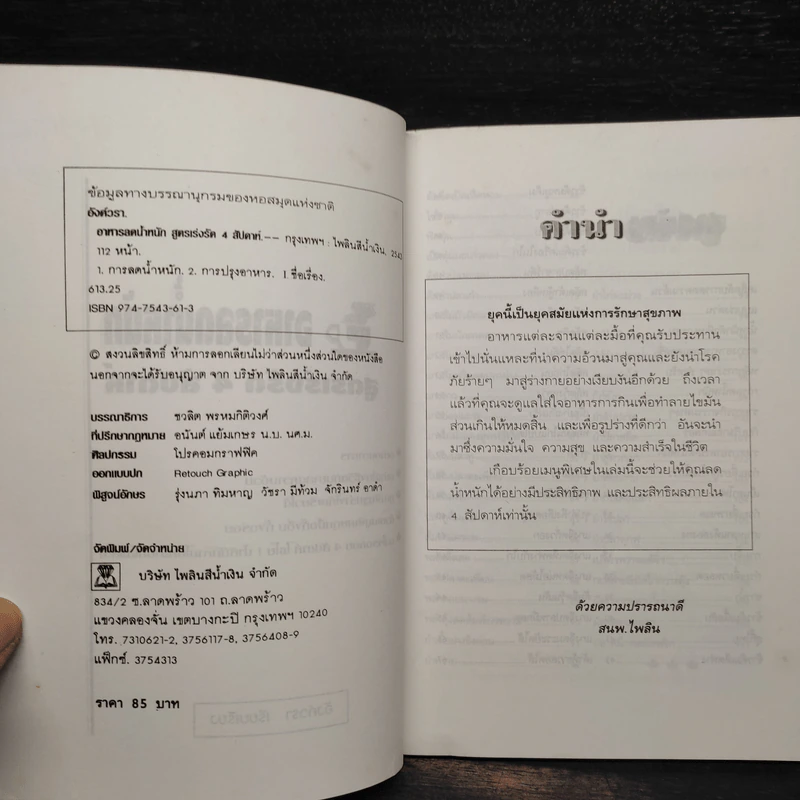 ข้อมูลทางบรรณานุกรมของหอสมุดแห่งชาติ
อังศวรา.
อาหารลดน้ำหนัก สูตรเร่งรัด 4 สัปดาห์.-- กรุงเทพฯ : ไพลินสีน้ำเงิน, 2543
112 หน้า.
1. การลดน้ำหนัก. 2. การปรุงอาหาร. I.ชื่อเรื่อง.
613.25
ISBN 974-7543-61-3
© สงวนลิขสิทธิ์ ห้ามการลอกเลียนไม่ว่าส่วนหนึ่งส่วนใดของหนังสือ
นอกจากจะได้รับอนุญาต จาก บริษัท ไพลินสีน้ำเงิน จำกัด
บรรณาธิการ ชวลิต พรหมกิติวงศ์
ที่ปรึกษากฎหมาย อนันต์ แย้มเกษร น.บ. นศ.ม.
ศิลปกรรม โปรคอมกราฟฟิค
ออกแบบปก Retouch Graphic
พิสูจน์อักษร รุ่งนภา ทิมหาญ วัชรา มีท้วม จักรินทร์ อาดำ
จัดพิมพ์/จัดจำหน่าย
บริษัท ไพลินสีน้ำเงิน จำกัด
834/2 ซ.ลาดพร้าว 101 ถ.ลาดพร้าว
แขวงคลองจั่น เขตบางกะปิ กรุงเทพฯ 10240
โทร. 7310621-2, 3756117-8, 3756408-9
แฟ็กซ์. 3754313
ราคา 85 บาท
คำนำ
ยุคนี้เป็นยุคสมัยแห่งการรักษาสุขภาพ
อาหารแต่ละจานแต่ละมื้อที่คุณรับประทาน
เข้าไปนั่นแหละที่นำความอ้วนมาสู่คุณและยังนำโรค
ภัยร้ายๆ มาสู่ร่างกายอย่างเงียบงันอีกด้วย ถึงเวลา
แล้วที่คุณจะดูแลใส่ใจอาหารการกินเพื่อทำลายไขมัน
ส่วนเกินให้หมดสิ้น และเพื่อรูปร่างที่ดีกว่า อันจะนำ
มาซึ่งความมั่นใจ ความสุข และความสำเร็จในชีวิต
เกือบร้อยเมนูพิเศษในเล่มนี้จะช่วยให้คุณลด
น้ำหนักได้อย่างมีประสิทธิภาพ และประสิทธิผลภายใน
4 สัปดาห์เท่านั้น
ด้วยความปรารถนาดี
สนพ.ไพลิน